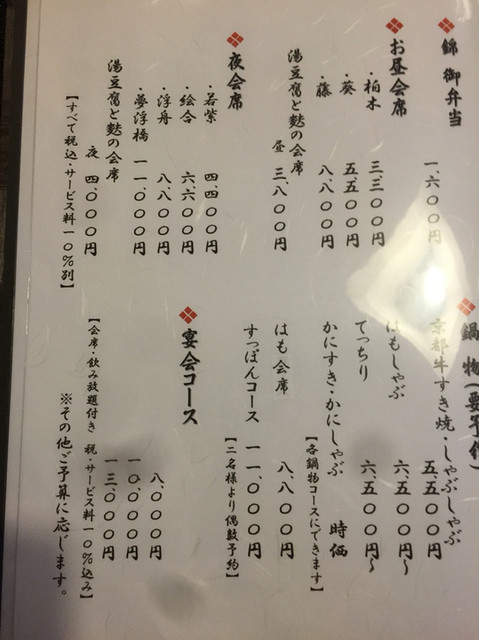 錦 御弁当
一、六〇〇円
お昼会席
・柏木 三、三〇〇円
・葵 五、五〇〇円
・藤 八、八〇〇円
湯豆腐と麩の会席
昼 三、八〇〇円
夜会席
・若紫 四、四〇〇円
・絵合 六、六〇〇円
・浮舟 八、八〇〇円
・夢浮橋 一一、〇〇〇円
湯豆腐と麩の会席
夜 四、〇〇〇円
【すべて税込・サービス料一〇％別】
鍋物(要予約)
京都牛すき焼・しゃぶしゃぶ
五、五〇〇円
はもしゃぶ 六、五〇〇円〜
てっちり 六、五〇〇円〜
かにすき・かにしゃぶ 時価
【各鍋物コースにできます】
はも会席 八、八〇〇円
すっぽんコース 一一、〇〇〇円
【二名様より偶数予約】
宴会コース
八、〇〇〇円
一〇、〇〇〇円
一三、〇〇〇円
【会席・飲み放題付き 税・サービス料一〇％込み】
※その他ご予算に応じます。